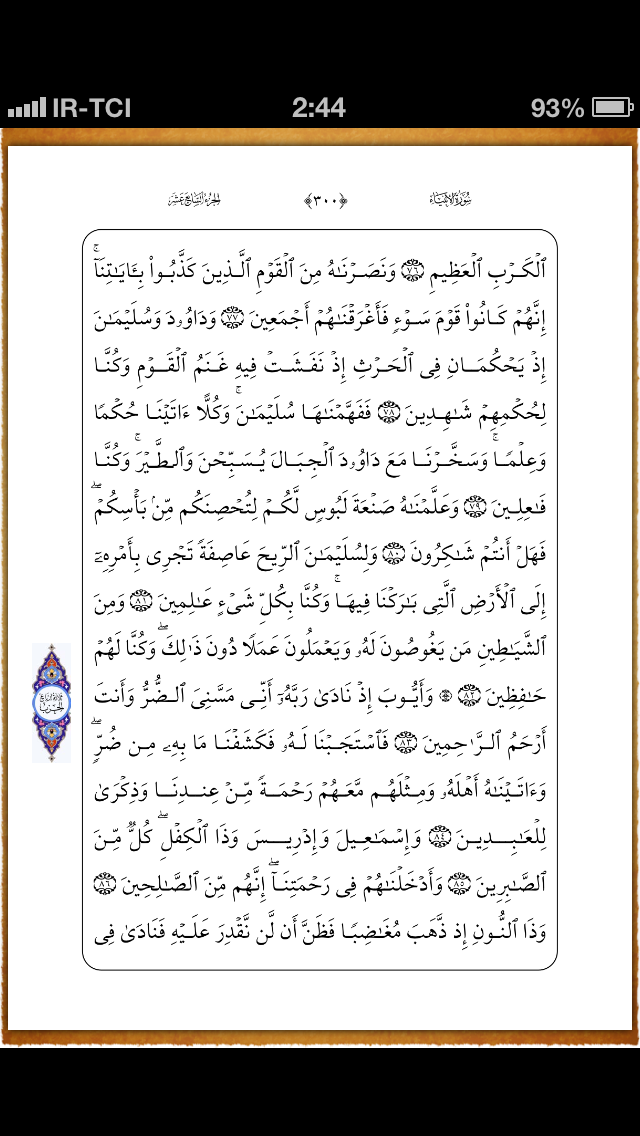 IR-TCI 2:44 93%
سُورَةُ الأَنْبِيَاء ﴿٣٠٠﴾ الجُزْءُ السَّابِعُ عَشَر
ٱلۡكَرۡبِ ٱلۡعَظِيمِ ٧٦ وَنَصَرۡنَٰهُ مِنَ ٱلۡقَوۡمِ ٱلَّذِينَ كَذَّبُواْ بِـَٔايَٰتِنَآۚ
إِنَّهُمۡ كَانُواْ قَوۡمَ سَوۡءٖ فَأَغۡرَقۡنَٰهُمۡ أَجۡمَعِينَ ٧٧ وَدَاوُۥدَ وَسُلَيۡمَٰنَ
إِذۡ يَحۡكُمَانِ فِي ٱلۡحَرۡثِ إِذۡ نَفَشَتۡ فِيهِ غَنَمُ ٱلۡقَوۡمِ وَكُنَّا
لِحُكۡمِهِمۡ شَٰهِدِينَ ٧٨ فَفَهَّمۡنَٰهَا سُلَيۡمَٰنَۚ وَكُلًّا ءَاتَيۡنَا حُكۡمٗا
وَعِلۡمٗاۚ وَسَخَّرۡنَا مَعَ دَاوُۥدَ ٱلۡجِبَالَ يُسَبِّحۡنَ وَٱلطَّيۡرَۚ وَكُنَّا
فَٰعِلِينَ ٧٩ وَعَلَّمۡنَٰهُ صَنۡعَةَ لَبُوسٖ لَّكُمۡ لِتُحۡصِنَكُم مِّنۢ بَأۡسِكُمۡۖ
فَهَلۡ أَنتُمۡ شَٰكِرُونَ ٨٠ وَلِسُلَيۡمَٰنَ ٱلرِّيحَ عَاصِفَةٗ تَجۡرِي بِأَمۡرِهِۦٓ
إِلَى ٱلۡأَرۡضِ ٱلَّتِي بَٰرَكۡنَا فِيهَاۚ وَكُنَّا بِكُلِّ شَيۡءٍ عَٰلِمِينَ ٨١ وَمِنَ
ٱلشَّيَٰطِينِ مَن يَغُوصُونَ لَهُۥ وَيَعۡمَلُونَ عَمَلٗا دُونَ ذَٰلِكَۖ وَكُنَّا لَهُمۡ
حَٰفِظِينَ ٨٢ ۞ وَأَيُّوبَ إِذۡ نَادَىٰ رَبَّهُۥٓ أَنِّي مَسَّنِيَ ٱلضُّرُّ وَأَنتَ
أَرۡحَمُ ٱلرَّٰحِمِينَ ٨٣ فَٱسۡتَجَبۡنَا لَهُۥ فَكَشَفۡنَا مَا بِهِۦ مِن ضُرّٖۖ
وَءَاتَيۡنَٰهُ أَهۡلَهُۥ وَمِثۡلَهُم مَّعَهُمۡ رَحۡمَةٗ مِّنۡ عِندِنَا وَذِكۡرَىٰ
لِلۡعَٰبِدِينَ ٨٤ وَإِسۡمَٰعِيلَ وَإِدۡرِيسَ وَذَا ٱلۡكِفۡلِۖ كُلّٞ مِّنَ
ٱلصَّٰبِرِينَ ٨٥ وَأَدۡخَلۡنَٰهُمۡ فِي رَحۡمَتِنَآۖ إِنَّهُم مِّنَ ٱلصَّٰلِحِينَ ٨٦
وَذَا ٱلنُّونِ إِذ ذَّهَبَ مُغَٰضِبٗا فَظَنَّ أَن لَّن نَّقۡدِرَ عَلَيۡهِ فَنَادَىٰ فِي